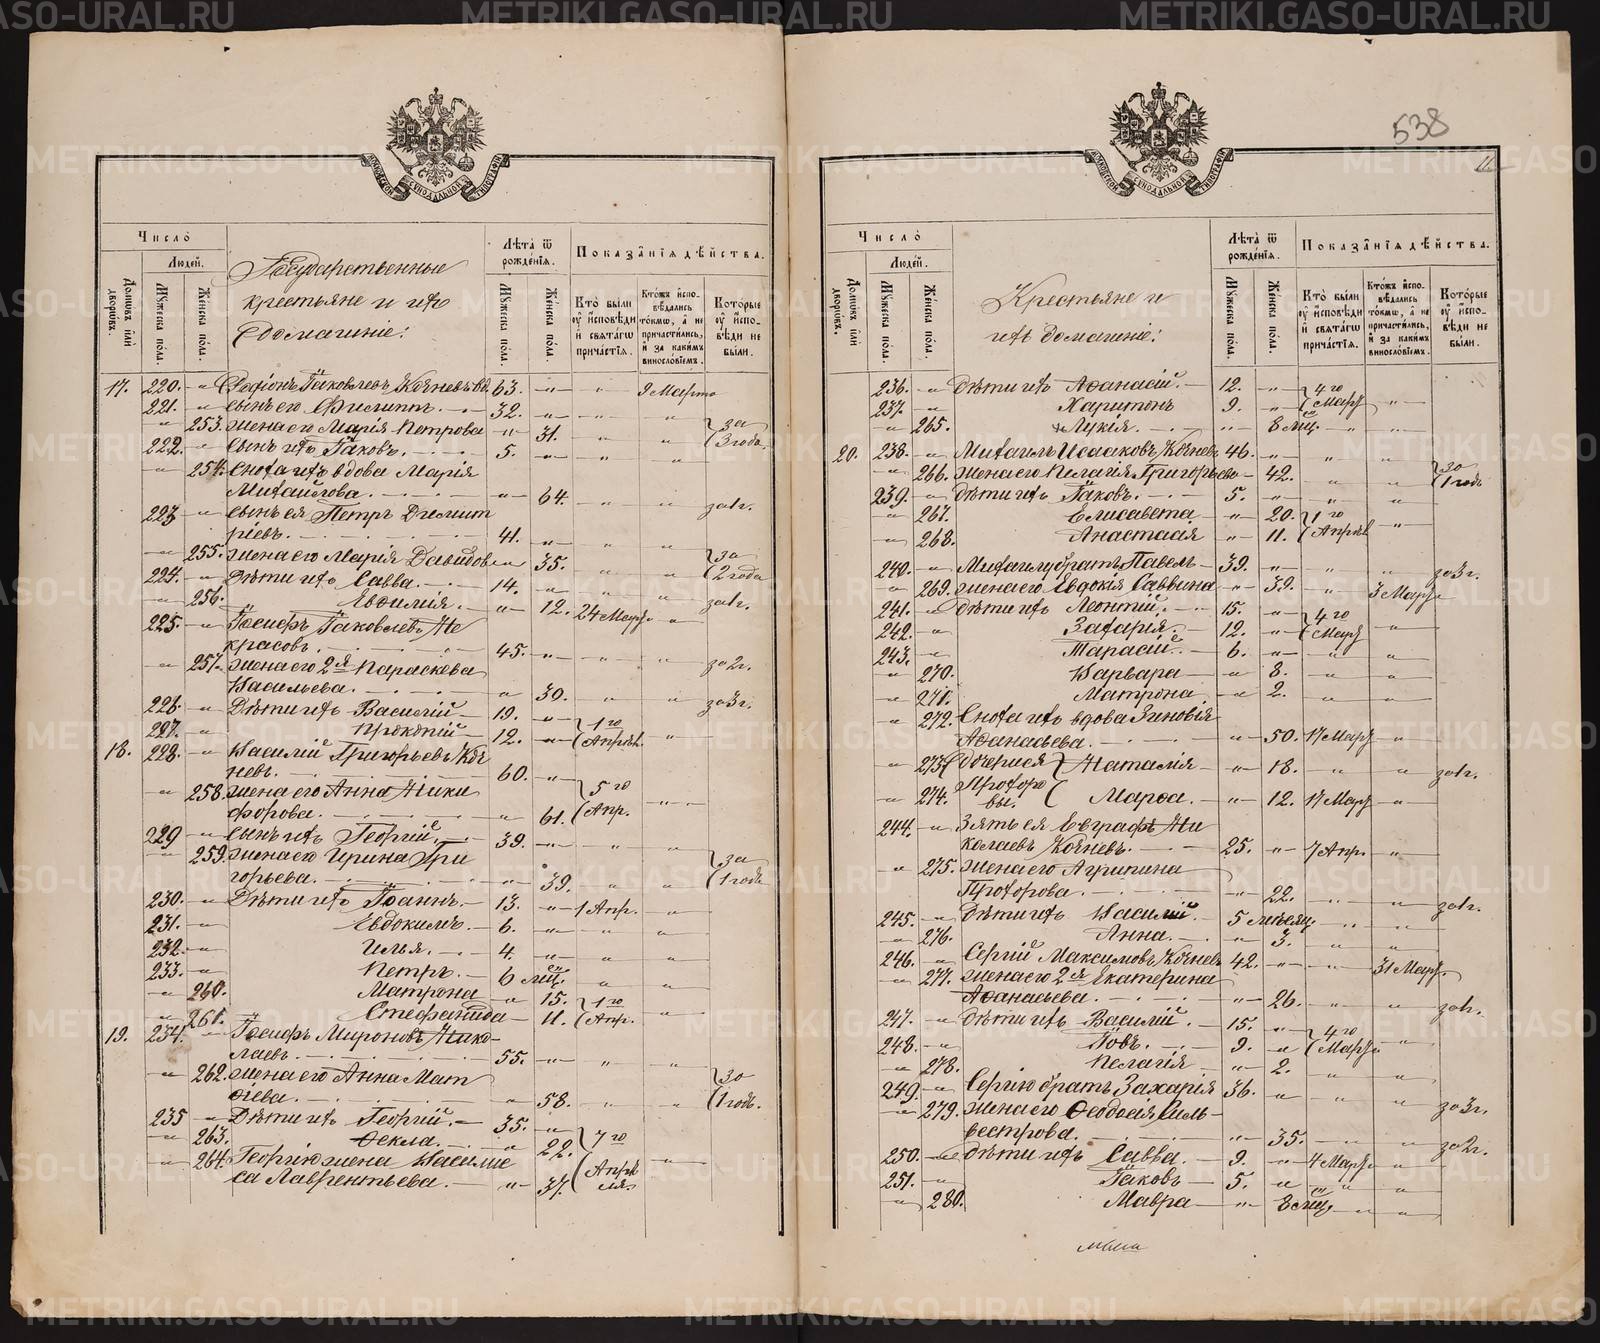 METRIKI.GASO-URAL.RU
538
11.
Московской Сѵнодальной Типографіи
Число̀
Людей.
Домѡвъ или дворѡвъ.
Мꙋжеска пола.
Женска пола.
Государственные
крестьяне и ихъ
домашніе:
Лѣта ѿ рожденїѧ.
Мꙋжеска пола.
Женска пола.
Показанїѧ дѣйства.
Кто были оу исповѣди и свѧтагѡ причастїѧ.
Ктожъ исповѣдались токмѡ, а не причастились, и за какимъ винословіемъ.
Которые оу исповѣди не были.
17. 220. Родіонъ Іаковлевъ вд. 63. 9 Марта
221. сынъ его Филиппъ. 32.
253. жена его Марія Петрова 31. за 3 года
222. сынъ ихъ Іаковъ. 5.
254. Сноха ихъ вдова Марія
Михайлова. 64. за 1 г.
223. сынъ ея Петръ Димит
ріевъ. 41.
255. жена его Марія Давидова 35. за 2 года
224. Дѣти ихъ Савва. 14.
256. Евфимія. 12. 24 Марта за 1 г.
225. Іосифъ Іаковлевъ Не
красовъ. 45.
257. жена его 2я Параскева за 2 г.
Васильева. 30.
226. Дѣти ихъ Василій 19. за 3 г.
227. Прокопій 12. 1го Апрѣл.
18. 228. Василій Григорьевъ
невъ. 60.
258. жена его Анна Ники 5го
форова. 61. Апр.
229 сынъ ихъ Георгій. 39.
259. жена его Ирина Гри за
горьева. 39. 1 годъ
230. Дѣти ихъ Іоаннъ. 13. 1 Апр.
231. Евдокимъ. 6.
232. Илья. 4.
233. Петръ. 6 мц.
260. Матрона 15. 1го
261. Стефанида 11. Апр.
19. 234. Іосифъ Мироновъ Нико-
лаевъ. 55.
262. жена его Анна Мат за
ѳіева. 58. 1 годъ.
235 Дѣти ихъ Георгій. 35.
263. Ѳекла. 22. 7го
264. Георгію жена Василис Апрѣ
са Лаврентьева. 37. ля.
Число̀
Людей.
Домѡвъ или дворѡвъ.
Мꙋжеска пола.
Женска пола.
Крестьяне и
ихъ домашніе:
Лѣта ѿ рожденїѧ.
Мꙋжеска пола.
Женска пола.
Показанїѧ дѣйства.
Кто были оу исповѣди и свѧтагѡ причастїѧ.
Ктожъ исповѣдались токмѡ, а не причастились, и за какимъ винословіемъ.
Которые оу исповѣди не были.
236. Дѣти ихъ Аѳанасій. 12. 4го
237. Харитонъ 9. Март
265. Лукія. 8 мц.
20. 238. Михаилъ Исааковъ 46.
266. жена его Пелагія Григорьева 42. за 1 годъ
239. Дѣти ихъ Іаковъ. 5.
267. Елисавета 20. 1го
268. Анастасія 11. Апрѣл
240. Михаилу братъ Павелъ 39. за 3 г.
269. жена его Евдокія Саввина 39. 3 Март.
241. Дѣти ихъ Леонтій. 15. 4го
242. Захарія. 12. Март
243. Тарасій. 6.
270. Варвара 8.
271. Матрона 2.
272. Сноха ихъ вдова Зиновія
Аѳанасьева. 50. 17 Март
273. Дочери ея Наталія 18. за 1 г.
274. Прохоро вы. Марѳа. 12. 17 Март
244. Зять ея Евграфъ Ни
колаевъ 25. 7 Апр.
275. жена его Агрипина
Прохорова. 22. за 1 г.
245. Дѣти ихъ Василій. 5 мѣсяц.
276. Анна. 3.
246. Сергій Максимовъ 42. 31 Март.
277. жена его 2я Екатерина
Аѳанасьева. 26. за 1 г.
247. Дѣти ихъ Василій. 15. 4го
248. Іовъ. 9. Март
278. Пелагія 2.
249. Сергію братъ Захарія 36.
279. жена его Ѳеодосія Силь- за 3 г.
вестрова. 35.
250. Дѣти ихъ Савва. 9. 4 Март за 2 г.
251. Іаковъ 5.
280. Мавра 8 мц.